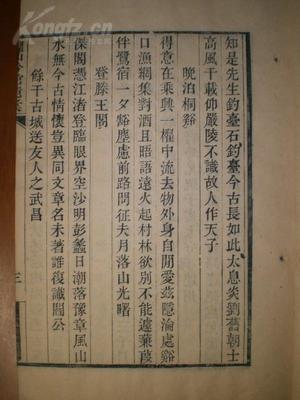 知是先生釣臺石釣臺今古長如此太息炎劉舊朝士
高風千載仰嚴陵不識故人作天子
晚泊桐谿
得意在乘興一櫂中流去物外身自閒愛茲隱淪處谿
口漁網集對酒且晤語遠火起村林欲別不能遽蒹葭
伴鷺宿一夕谿塵慮前路問征夫月落山光曙
登滕王閣
傑閣憑江渚登臨眼界空沙明彭蠡日潮落豫章風山
水無今古情懷豈異同文章名未著誰復識閻公
餘干古城送友人之武昌
三